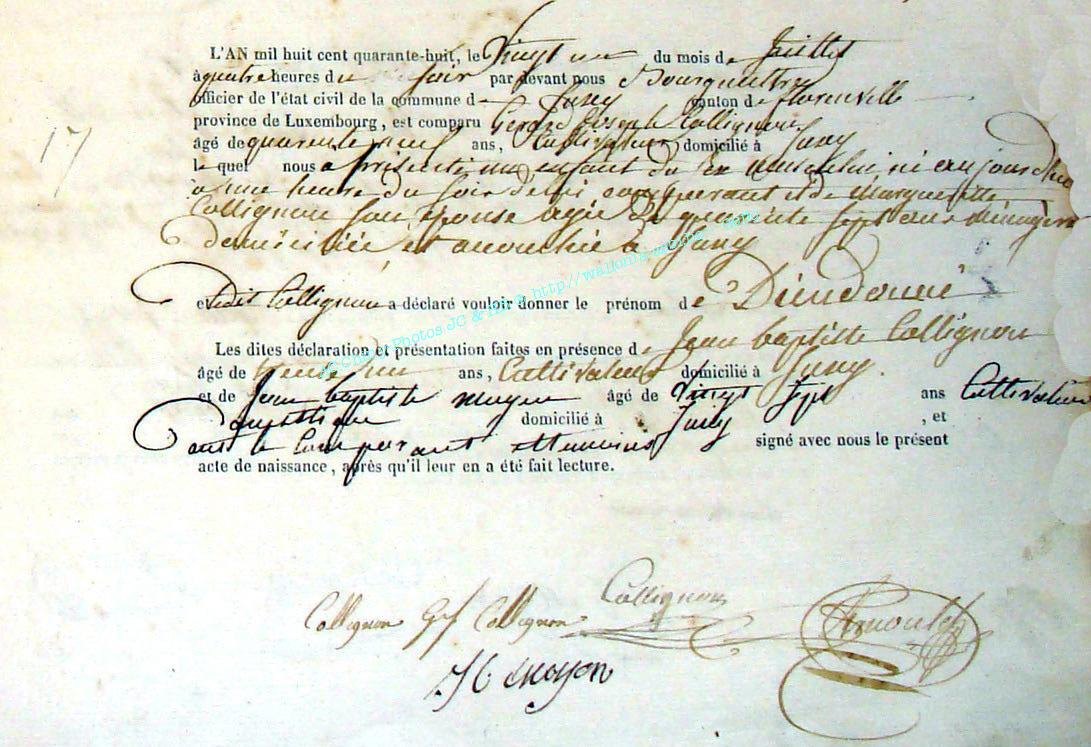 L'AN mil huit cent quarante-huit, le Vingt un du mois de Juillet
à quatre heures du soir par devant nous
officier de l'état civil de la commune de canton de Florenville
province de Luxembourg, est comparu Gerard Joseph Collignon
âgé de quarente neuf ans, Cultivateur domicilié à
le quel nous a présenté un enfant du sexe masculin, né ce jour
à une heure du soir de lui comparant et de Marguerite
Collignon son épouse agée de quarente sept ans ménagère
domiciliée et accouchée à
17
et ledit Collignon a déclaré vouloir donner le prénom de Dieudonné
Les dites déclaration et présentation faites en présence de Jean baptiste Collignon
âgé de trente un ans, Cultivateur domicilié à
et de Jean baptiste âgé de Vingt sept ans Cultivateur
domicilié à , et
ont le Comparant et temoins signé avec nous le présent
acte de naissance, après qu'il leur en a été fait lecture.
Collignon
Collignon Collignon